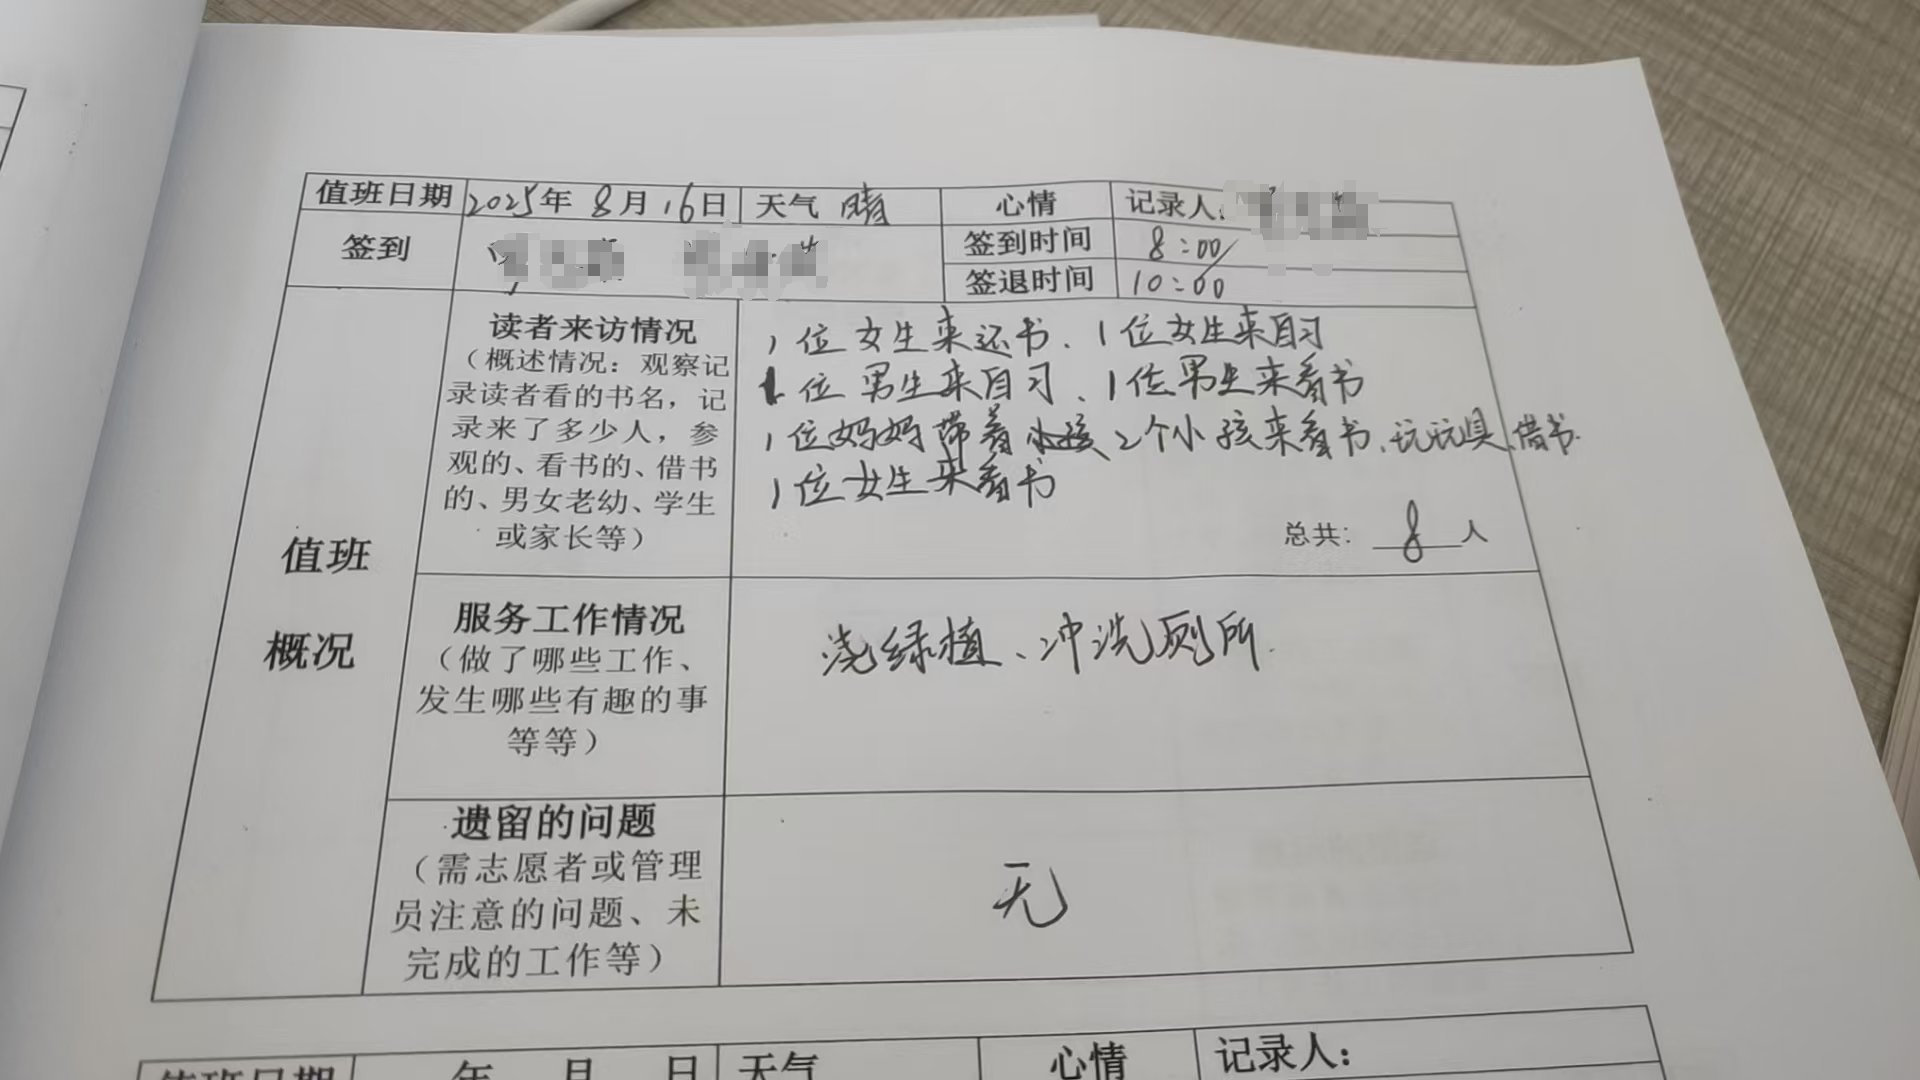 值班日期 2025年 8月 16日 天气 晴 心情 记录人:
签到 签到时间 8:00
签退时间 10:00
值班
概况
读者来访情况
（概述情况：观察记
录读者看的书名，记
录来了多少人，参
观的、看书的、借书
的、男女老幼、学生
或家长等）
1位女生来还书、1位女生来自习
1位男生来自习、1位男生来看书
1位妈妈带着2个小孩来看书、玩玩具、借书.
1位女生来看书
总共: 8 人
服务工作情况
（做了哪些工作、
发生哪些有趣的事
等等）
浇绿植、冲洗厕所.
遗留的问题
（需志愿者或管理
员注意的问题、未
完成的工作等）
无
值班日期 年 月 日 天气 心情 记录人: